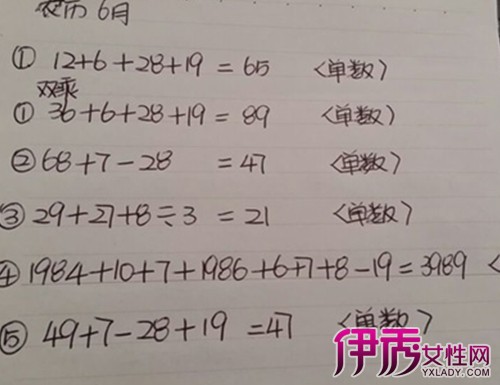 农历 6月
① 12+6+28+19 = 65 〈单数〉
双乘
① 36+6+28+19 = 89 〈单数〉
② 68+7-28 = 47 〈单数〉
③ 29+27+8÷3 = 21 〈单数〉
④ 1984+10+7+1986+6+7+8-19=3989 〈
⑤ 49+7-28+19 =47 〈单数〉
伊秀女性网
YXLADY.COM